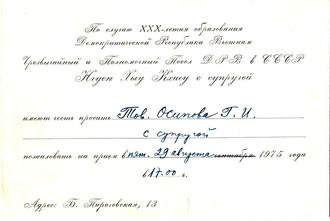 По случаю XXX-летия образования
Демократической Республики Вьетнам
Чрезвычайный и Полномочный Посол ДРВ в СССР
Нгуен Хыу Кхиеу с супругой
имеют честь просить Тов. Осипова Г. И.
с супругой
пожаловать на прием в пят. 29 августа сентября 1975 года
в 17.00 г.
Адрес: Б. Пироговская, 13